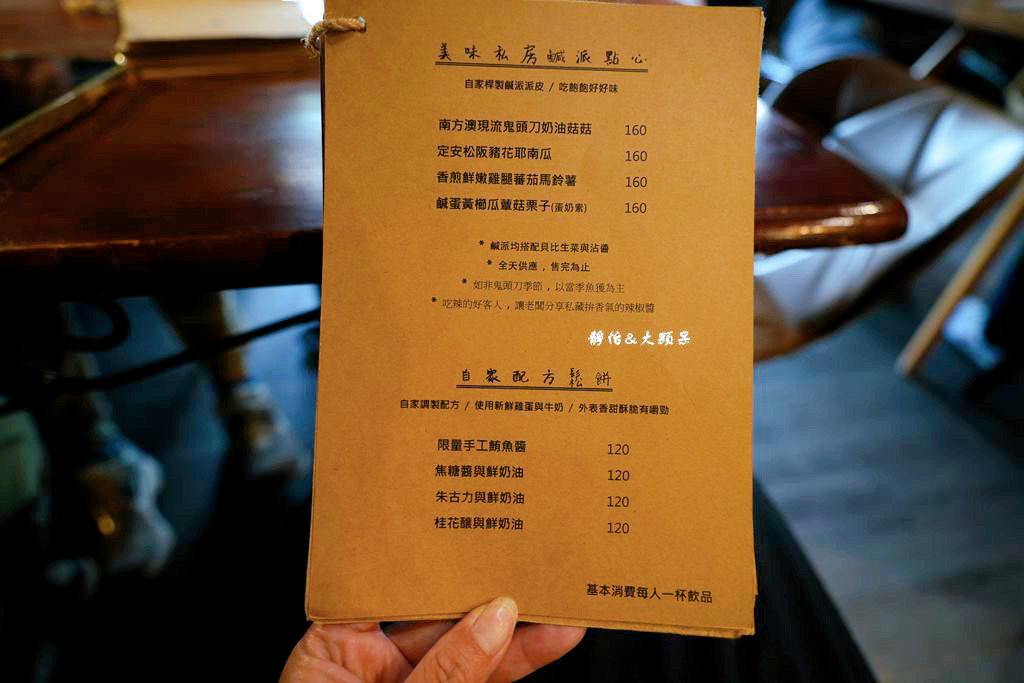 美味私房鹹派點心
自家桿製鹹派派皮 / 吃飽飽好好味
南方澳現流鬼頭刀奶油菇菇 160
定安松阪豬花耶南瓜 160
香煎鮮嫩雞腿蕃茄馬鈴薯 160
鹹蛋黃櫛瓜蕈菇栗子(蛋奶素) 160
* 鹹派均搭配貝比生菜與沾醬
* 全天供應，售完為止
* 如非鬼頭刀季節，以當季魚獲為主
* 吃辣的好客人，讓老闆分享私藏拚香氣的辣椒醬
靜怡&大顆呆
自家配方鬆餅
自家調製配方 / 使用新鮮雞蛋與牛奶 / 外表香甜酥脆有嚼勁
限量手工鮪魚醬 120
焦糖醬與鮮奶油 120
朱古力與鮮奶油 120
桂花釀與鮮奶油 120
基本消費每人一杯飲品